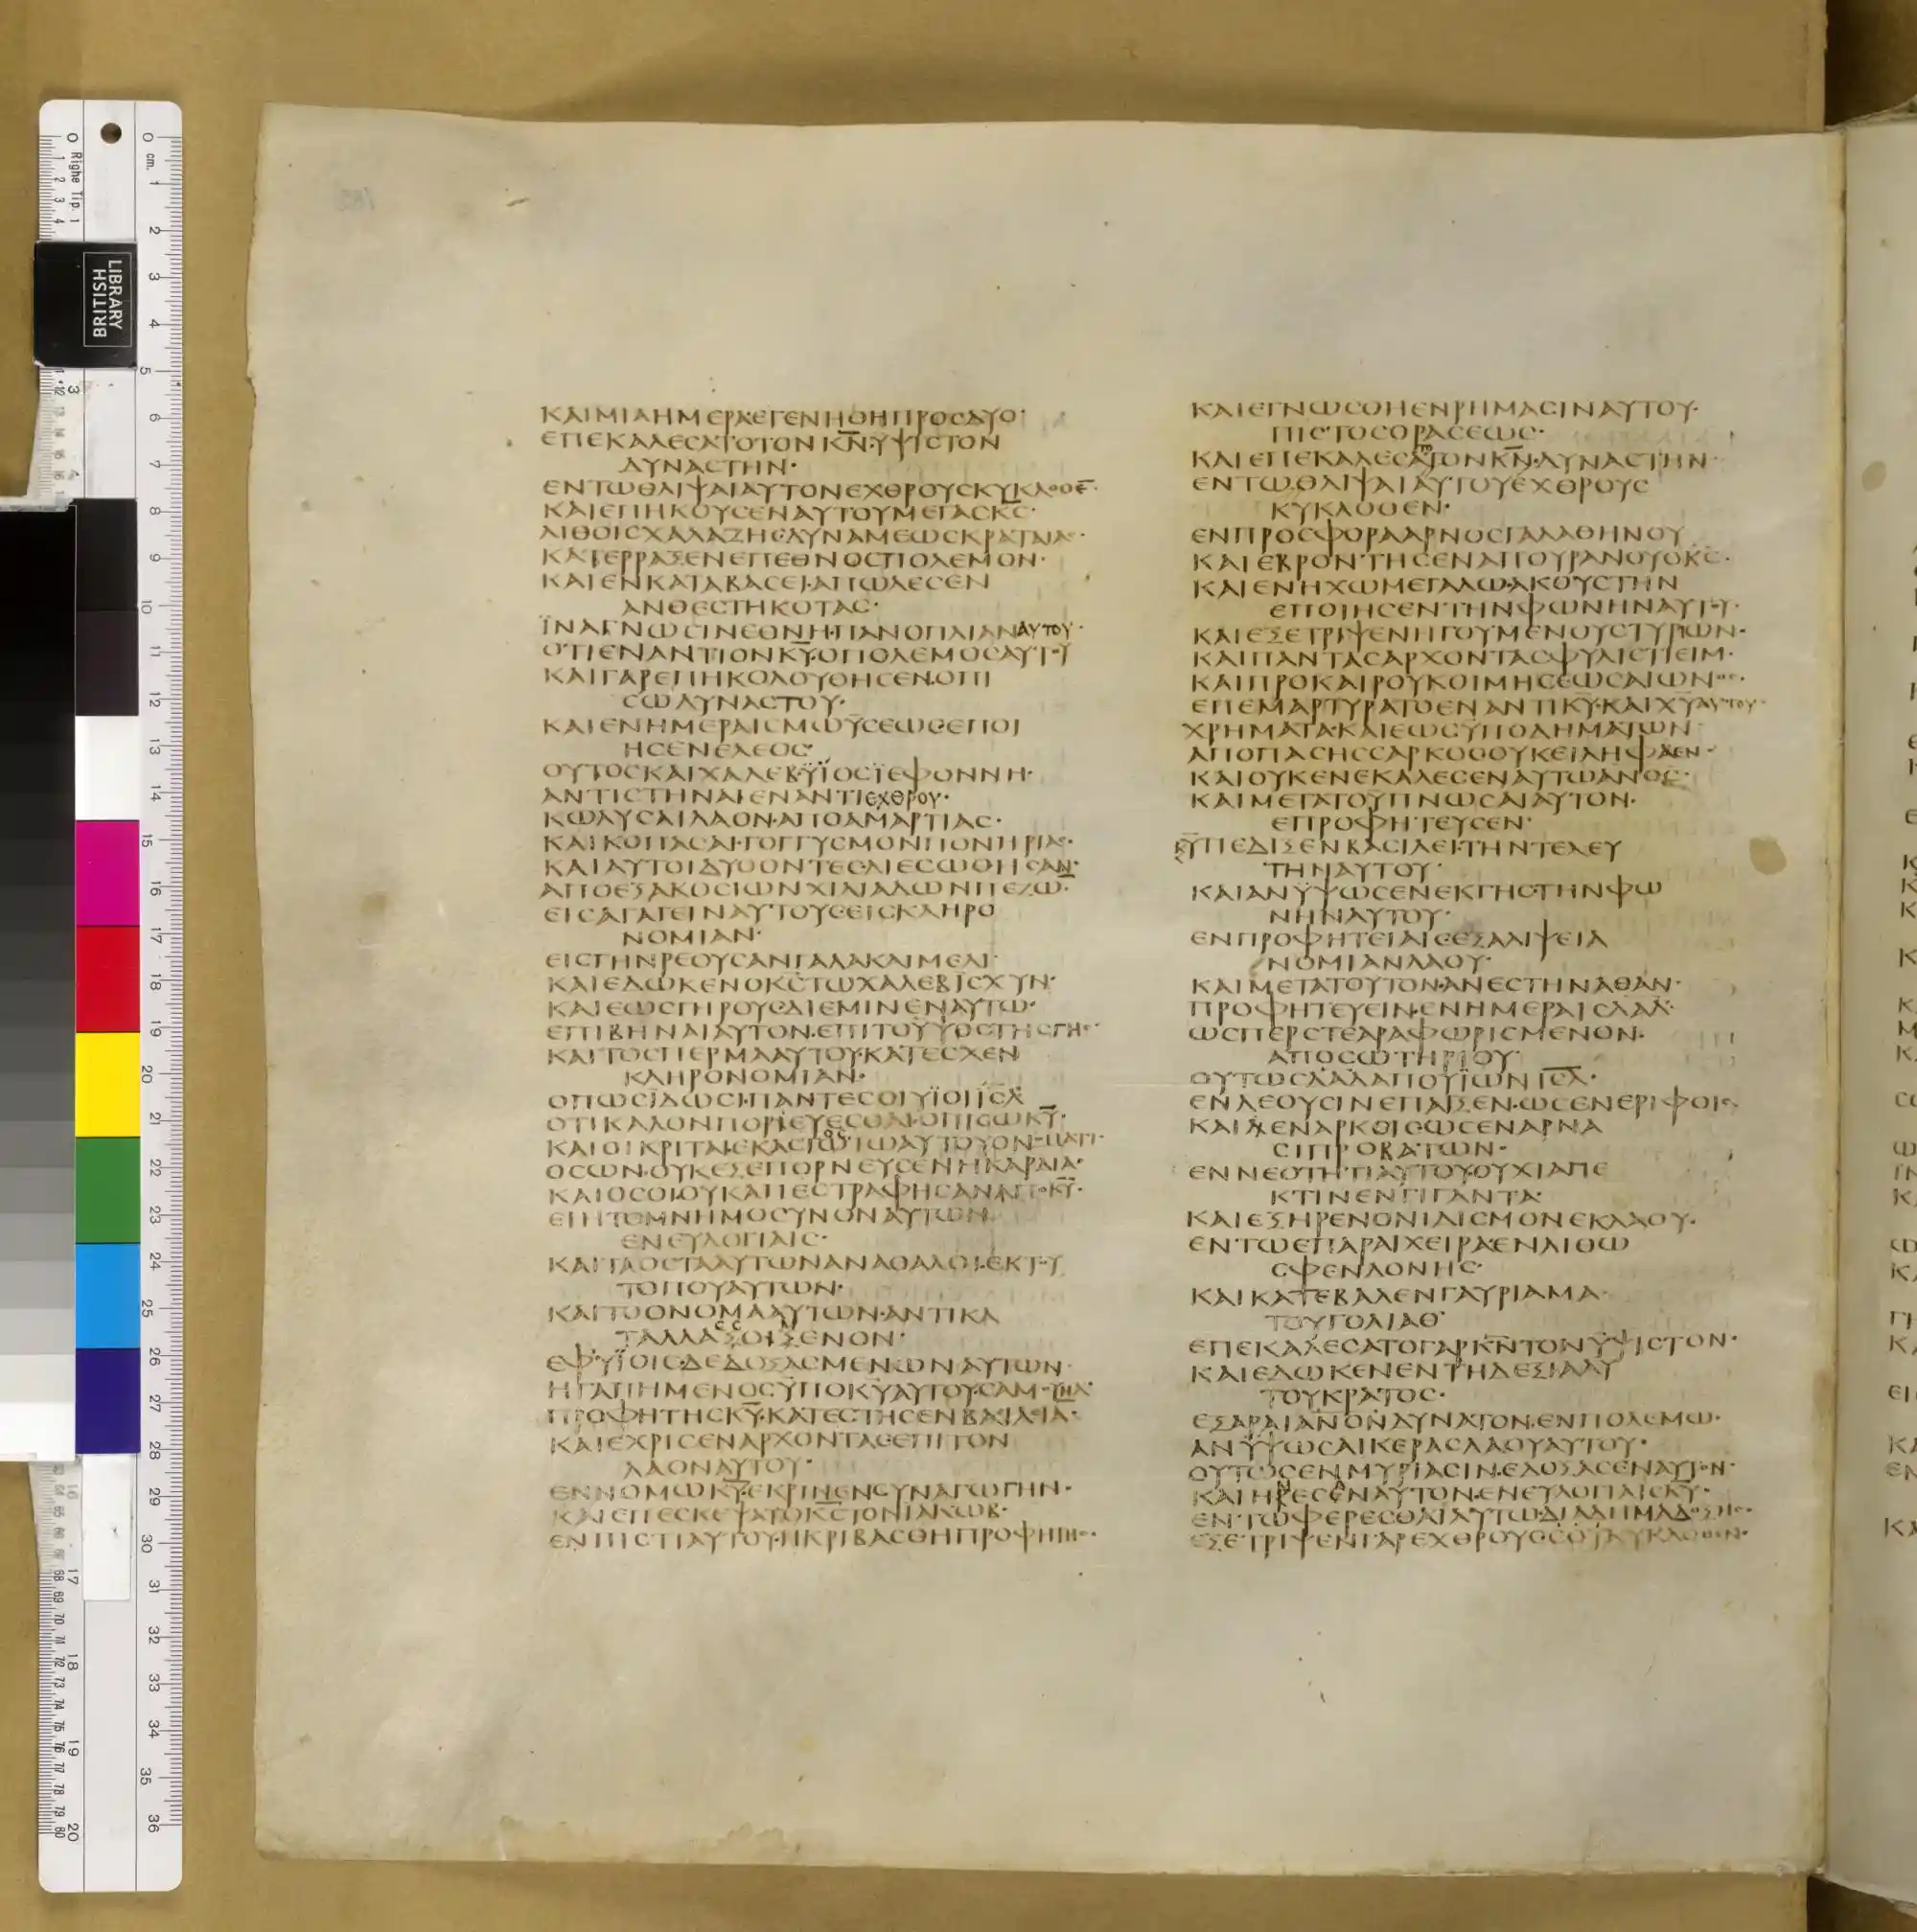 ΚΑΙΜΙΑΗΜΕΡΑΕΓΕΝΗΘΗΠΡΟΣΔΥΟ·
ΕΠΕΚΑΛΕΣΑΤΟΤΟΝΚΝ·ΥΨΙΣΤΟΝ
ΔΥΝΑΣΤΗΝ·
ΕΝΤΩΘΛΙΨΑΙΑΥΤΟΝΕΧΘΡΟΥΣΚΥΚΛΟΘΕ̅·
ΚΑΙΕΠΗΚΟΥΣΕΝΑΥΤΟΥΜΕΓΑΣΚΣ·
ΛΙΘΟΙΣΧΑΛΑΖΗΣΔΥΝΑΜΕΩΣΚΡΑΤΑΙΑΣ·
ΚΑΤΕΡΡΑΞΕΝΕΠΕΘΝΟΣΠΟΛΕΜΟΝ·
ΚΑΙΕΝΚΑΤΑΒΑΣΕΙ·ΑΠΩΛΕΣΕΝ
ΑΝΘΕΣΤΗΚΟΤΑΣ·
ΪΝΑΓΝΩΣΙΝΕΘΝΗ·ΠΑΝΟΠΛΙΑΝΑΥΤΟΥ·
ΟΤΙΕΝΑΝΤΙΟΝΚΥ·ΟΠΟΛΕΜΟΣΑΥΤΟΥ
ΚΑΙΓΑΡΕΠΗΚΟΛΟΥΘΗΣΕΝ·ΟΠΙ
ΣΩΔΥΝΑΣΤΟΥ·
ΚΑΙΕΝΗΜΕΡΑΙΣΜΩΫΣΕΩΣΕΠΟΙ
ΗΣΕΝΕΛΕΟΣ·
ΟΥΤΟΣΚΑΙΧΑΛΕΒ·ΫΪΟΣΪΕΦΟΝΝΗ·
ΑΝΤΙΣΤΗΝΑΙΕΝΑΝΤΙΕΧΘΡΟΥ·
ΚΩΛΥΣΑΙΛΑΟΝ·ΑΠΟΑΜΑΡΤΙΑΣ·
ΚΑΙΚΟΠΑΣΑΙ·ΓΟΓΓΥΣΜΟΝΠΟΝΗΡΙΑΣ·
ΚΑΙΑΥΤΟΙΔΥΟΟΝΤΕΣ·ΔΙΕΣΩΘΗΣΑΝ·
ΑΠΟΕΞΑΚΟΣΙΩΝΧΙΛΙΑΔΩΝΠΕΖΩ·
ΕΙΣΑΓΑΓΕΙΝΑΥΤΟΥΣ·ΕΙΣΚΛΗΡΟ
ΝΟΜΙΑΝ·
ΕΙΣΓΗΝΡΕΟΥΣΑΝΓΑΛΑΚΑΙΜΕΛΙ·
ΚΑΙΕΔΩΚΕΝΟΚΣΤΩΧΑΛΕΒΙΣΧΥΝ·
ΚΑΙΕΩΣΓΗΡΟΥΣ·ΔΙΕΜΙΝΕΝΑΥΤΩ·
ΕΠΙΒΗΝΑΙΑΥΤΟΝ·ΕΠΙΤΟΥΨΟΣΤΗΣΓΗΣ·
ΚΑΙΤΟΣΠΕΡΜΑΑΥΤΟΥ·ΚΑΤΕΣΧΕΝ
ΚΛΗΡΟΝΟΜΙΑΝ·
ΟΠΩΣΙΔΩΣΙ·ΠΑΝΤΕΣΟΙΥΪΟΙΙΣΛ
ΟΤΙΚΑΛΟΝΠΟΡΕΥΕΣΘΑΙ·ΟΠΙΣΩΚΥ·
ΚΑΙΟΙΚΡΙΤΑΙ·ΕΚΑΣΤΟΣΤΩΑΥΤΟΥΟΝΟΜΑΤΙ·
ΟΣΩΝ·ΟΥΚΕΞΕΠΟΡΝΕΥΣΕΝΗΚΑΡΔΙΑ·
ΚΑΙΟΣΟΙΟΥΚΑΠΕΣΤΡΑΦΗΣΑΝΑΠΟΚΥ·
ΕΙΗΤΟΜΝΗΜΟΣΥΝΟΝΑΥΤΩΝ
ΕΝΕΥΛΟΓΙΑΙΣ·
ΚΑΙΤΑΟΣΤΑΑΥΤΩΝΑΝΑΘΑΛΟΙ·ΕΚΤΟΥ
ΤΟΠΟΥΑΥΤΩΝ·
ΚΑΙΤΟΟΝΟΜΑΑΥΤΩΝ·ΑΝΤΙΚΑ
ΤΑΛΛΑΣΣΟΜΕΝΟΝ·
ΕΦΥΪΟΙΣ·ΔΕΔΟΞΑΣΜΕΝΩΝΑΥΤΩΝ·
ΗΓΑΠΗΜΕΝΟΣΫΠΟΚΥΑΥΤΟΥ·ΣΑΜΟΥΗΛ·
ΠΡΟΦΗΤΗΣΚΥ·ΚΑΤΕΣΤΗΣΕΝΒΑΣΙΛΙΑ·
ΚΑΙΕΧΡΙΣΕΝΑΡΧΟΝΤΑΣ·ΕΠΙΤΟΝ
ΛΑΟΝΑΥΤΟΥ·
ΕΝΝΟΜΩΚΥ·ΕΚΡΙΝΕΝΣΥΝΑΓΩΓΗΝ·
ΚΑΙΕΠΕΣΚΕΨΑΤΟΚΣΤΟΝΙΑΚΩΒ·
ΕΝΠΙΣΤΙΑΥΤΟΥ·ΗΚΡΙΒΑΣΘΗΠΡΟΦΗΤΗΣ·
ΚΑΙΕΓΝΩΣΘΗΕΝΡΗΜΑΣΙΝΑΥΤΟΥ·
ΠΙΣΤΟΣΟΡΑΣΕΩΣ·
ΚΑΙΕΠΕΚΑΛΕΣΑΤΟΤΟΝΚΝ·ΔΥΝΑΣΤΗΝ·
ΕΝΤΩ·ΘΛΙΨΑΙΑΥΤΟΥΕΧΘΡΟΥΣ
ΚΥΚΛΟΘΕΝ·
ΕΝΠΡΟΣΦΟΡΑΑΡΝΟΣΓΑΛΑΘΗΝΟΥ
ΚΑΙΕΒΡΟΝΤΗΣΕΝΑΠΟΥΡΑΝΟΥΟΚΣ·
ΚΑΙΕΝΗΧΩΜΕΓΑΛΩ·ΑΚΟΥΣΤΗΝ
ΕΠΟΙΗΣΕΝΤΗΝΦΩΝΗΝΑΥΤΟΥ·
ΚΑΙΕΞΕΤΡΙΨΕΝΗΓΟΥΜΕΝΟΥΣΤΥΡΙΩΝ·
ΚΑΙΠΑΝΤΑΣΑΡΧΟΝΤΑΣΦΥΛΙΣΤΙΕΙΜ·
ΚΑΙΠΡΟΚΑΙΡΟΥΚΟΙΜΗΣΕΩΣΑΙΩΝΟΣ·
ΕΠΕΜΑΡΤΥΡΑΤΟΕΝΑΝΤΙΚΥ·ΚΑΙΧΥΑΥΤΟΥ·
ΧΡΗΜΑΤΑ·ΚΑΙΕΩΣΫΠΟΔΗΜΑΤΩΝ
ΑΠΟΠΑΣΗΣΣΑΡΚΟΣΟΥΚΕΙΛΗΦΑΕΝ·
ΚΑΙΟΥΚΕΝΕΚΑΛΕΣΕΝΑΥΤΩΑΝΟΣ·
ΚΑΙΜΕΤΑΤΟΥΠΝΩΣΑΙΑΥΤΟΝ·
ΕΠΡΟΦΗΤΕΥΣΕΝ·
ΚΥΠΕΔΙΞΕΝΒΑΣΙΛΕΙ·ΤΗΝΤΕΛΕΥ
ΤΗΝΑΥΤΟΥ·
ΚΑΙΑΝΥΨΩΣΕΝΕΚΓΗΣ·ΤΗΝΦΩ
ΝΗΝΑΥΤΟΥ·
ΕΝΠΡΟΦΗΤΕΙΑΙΕΞΑΛΙΨΕΙΑ
ΝΟΜΙΑΝΛΑΟΥ·
ΚΑΙΜΕΤΑΤΟΥΤΟΝ·ΑΝΕΣΤΗΝΑΘΑΝ·
ΠΡΟΦΗΤΕΥΕΙΝ·ΕΝΗΜΕΡΑΙΣΔΑΔ·
ΩΣΠΕΡΣΤΕΑΡΑΦΩΡΙΣΜΕΝΟΝ·
ΑΠΟΣΩΤΗΡΙΟΥ·
ΟΥΤΩΣΔΑΔΑΠΟΥΪΩΝΙΣΛ·
ΕΝΛΕΟΥΣΙΝΕΠΑΙΞΕΝ·ΩΣΕΝΕΡΙΦΟΙΣ
ΚΑΙΕΝΑΡΚΟΙΣΩΣΕΝΑΡΝΑ
ΣΙΠΡΟΒΑΤΩΝ·
ΕΝΝΕΟΤΗΤΙΑΥΤΟΥ·ΟΥΧΙΑΠΕ
ΚΤΙΝΕΝΓΙΓΑΝΤΑ·
ΚΑΙΕΞΗΡΕΝΟΝΙΔΙΣΜΟΝΕΚΛΑΟΥ·
ΕΝΤΩΕΠΑΡΑΙΧΕΙΡΑΕΝΛΙΘΩ
ΣΦΕΝΔΟΝΗΣ·
ΚΑΙΚΑΤΕΒΑΛΕΝΓΑΥΡΙΑΜΑ·
ΤΟΥΓΟΛΙΑΘ·
ΕΠΕΚΑΛΕΣΑΤΟΓΑΡΚΝΤΟΝΥΨΙΣΤΟΝ·
ΚΑΙΕΔΩΚΕΝΕΝΤΗΔΕΞΙΑΑΥ
ΤΟΥΚΡΑΤΟΣ·
ΕΞΑΡΑΙΑΝΟΝΔΥΝΑΤΟΝ·ΕΝΠΟΛΕΜΩ·
ΑΝΥΨΩΣΑΙΚΕΡΑΣΛΑΟΥΑΥΤΟΥ·
ΟΥΤΩΣΕΝΜΥΡΙΑΣΙΝ·ΕΔΟΞΑΣΕΝΑΥΤΟΝ·
ΚΑΙΗΝΕΣΕΝΑΥΤΟΝ·ΕΝΕΥΛΟΓΙΑΙΣΚΥ·
ΕΝΤΩΦΕΡΕΣΘΑΙΑΥΤΩ·ΔΙΑΔΗΜΑΔΟΞΗΣ·
ΕΞΕΤΡΙΨΕΝΓΑΡΕΧΘΡΟΥΣ·ΚΥΚΛΟΘΕΝ·